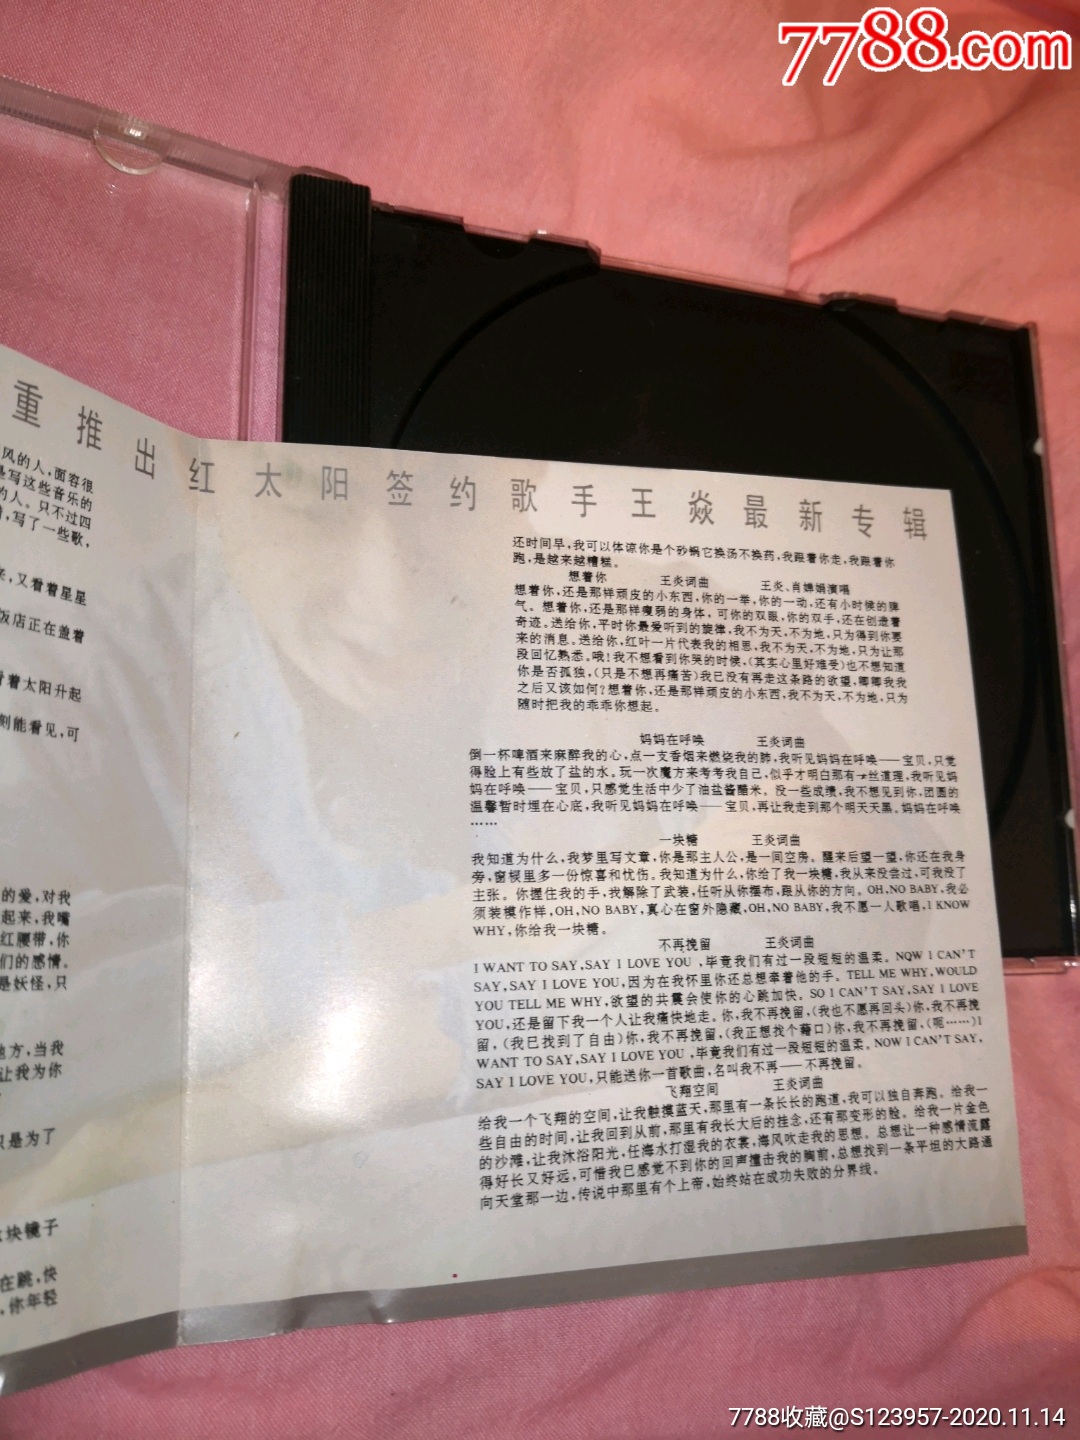 7788.com
重推出红太阳签约歌手王焱最新专辑
风的人,面容很
是写这些音乐的
的人。只不过四
写了一些歌,
来,又看着星星
饭店正在盖着
着太阳升起
刻能看见,可
的爱,对我
起来,我嘴
红腰带,你
们的感情。
是妖怪,只
地方,当我
让我为你
只是为了
块镜子
在跳,快
你年轻
还时间早,我可以体谅你是个砂锅它换汤不换药,我跟着你走,我跟着你
跑,是越来越糟糕。
想着你 王炎词曲 王炎、肖婵娟演唱
想着你,还是那样顽皮的小东西,你的一举,你的一动,还有小时候的脾
气。想着你,还是那样瘦弱的身体,可你的双眼,你的双手,还在创造着
奇迹。送给你,平时你最爱听到的旋律,我不为天,不为地,只为得到你要
来的消息。送给你,红叶一片代表我的相思,我不为天,不为地,只为让那
段回忆熟悉。哦!我不想看到你哭的时候,(其实心里好难受)也不想知道
你是否孤独,(只是不想再痛苦)我已没有再走这条路的欲望,唧唧我我
之后又该如何?想着你,还是那样顽皮的小东西,我不为天,不为地,只为
随时把我的乖乖你想起。
妈妈在呼唤 王炎词曲
倒一杯啤酒来麻醉我的心,点一支香烟来燃烧我的肺,我听见妈妈在呼唤——宝贝,只觉
得脸上有些放了盐的水。玩一次魔方来考考我自己,似乎才明白那有一丝道理,我听见妈
妈在呼唤——宝贝,只感觉生活中少了油盐酱醋米。没一些成绩,我不想见到你,团圆的
温馨暂时埋在心底,我听见妈妈在呼唤——宝贝,再让我走到那个明天天黑。妈妈在呼唤
……
一块糖 王炎词曲
我知道为什么,我梦里写文章,你是那主人公,是一间空房。醒来后望一望,你还在我身
旁,窗棂里多一份惊喜和忧伤。我知道为什么,你给了我一块糖,我从来没尝过,可我没了
主张。你握住我的手,我解除了武装,任听从你摆布,跟从你的方向。OH,NO BABY,我必
须装模作样,OH,NO BABY,真心在窗外隐藏,OH,NO BABY,我不愿一人歌唱,I KNOW
WHY,你给我一块糖。
不再挽留 王炎词曲
I WANT TO SAY,SAY I LOVE YOU,毕竟我们有过一段短短的温柔。NOW I CAN'T
SAY,SAY I LOVE YOU,因为在我怀里你还总想牵着他的手。TELL ME WHY,WOULD
YOU TELL ME WHY,欲望的共震会使你的心跳加快。SO I CAN'T SAY,SAY I LOVE
YOU,还是留下我一个人让我痛快地走。你,我不再挽留,(我也不愿再回头)你,我不再挽
留,(我已找到了自由)你,我不再挽留,(我正想找个藉口)你,我不再挽留,(呃……)I
WANT TO SAY,SAY I LOVE YOU,毕竟我们有过一段短短的温柔。NOW I CAN'T SAY,
SAY I LOVE YOU,只能送你一首歌曲,名叫我不再——不再挽留。
飞翔空间 王炎词曲
给我一个飞翔的空间,让我触摸蓝天,那里有一条长长的跑道,我可以独自奔跑。给我一
些自由的时间,让我回到从前,那里有我长大后的挂念,还有那变形的脸。给我一片金色
的沙滩,让我沐浴阳光,任海水打湿我的衣裳,海风吹走我的思想。总想让一种感情流露
得好长又好远,可惜我已感觉不到你的回声撞击我的胸前,总想找到一条平坦的大路通
向天堂那一边,传说中那里有个上帝,始终站在成功失败的分界线。
7788收藏@S123957-2020.11.14